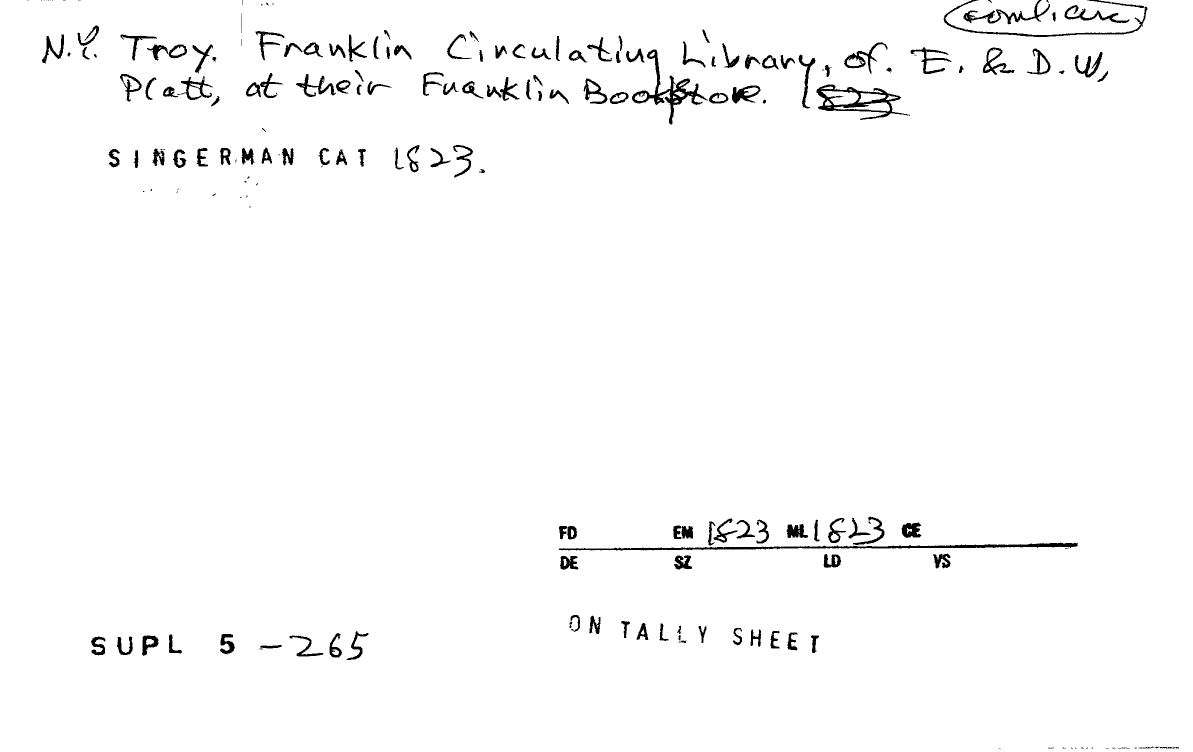 N.Y. Troy. Franklin Circulating Library, of. E. & D.W,
Platt, at their Franklin Bookstore. 1823
SINGERMAN CAT 1823.
FD EM 1823 ML 1823 CE
DE SZ LD VS
ON TALLY SHEET
SUPL 5 -265